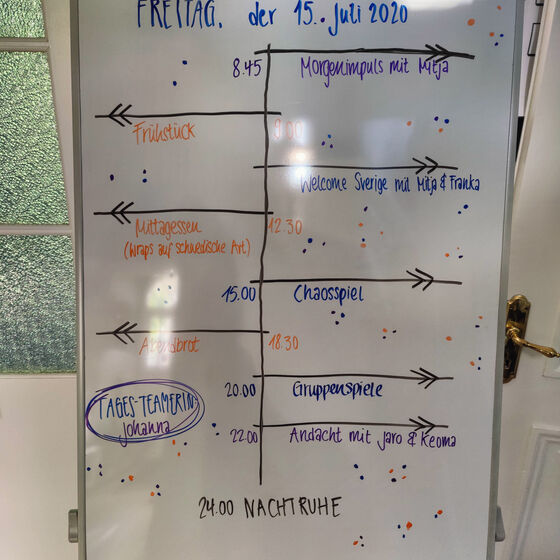 FREITAG, der 15. Juli 2020
8.45 Morgenimpuls mit Mitja
Frühstück 9.00
Welcome Sverige mit Mitja & Franka
Mittagessen 12.30
(Wraps auf schwedische Art)
15.00 Chaosspiel
Abendbrot 18.30
20.00 Gruppenspiele
TAGES-TEAMERIN:
Johanna
22.00 Andacht mit Jaro & Keoma
24.00 NACHTRUHE